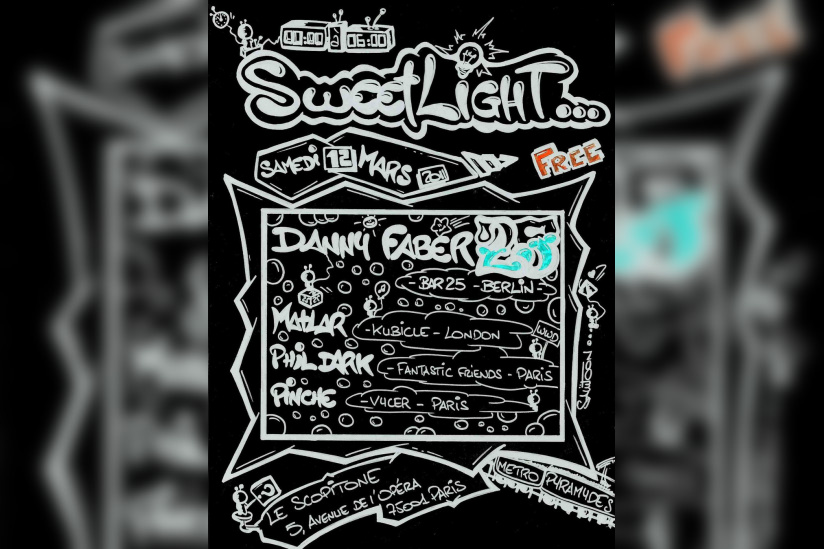 00:00 à 06:00
SWEETLIGHT...
SAMEDI 12 MARS 2011
FREE
DANNY FABER
- BAR 25 - BERLIN -
MATLAR
- KUBICLE - LONDON
WWD
PHIL DARK
- FANTASTIC FRIENDS - PARIS
PINCHE
- V4CER - PARIS
LE SCOPITONE
5, AVENUE DE L'OPÉRA
75001 PARIS
METRO PYRAMYDES